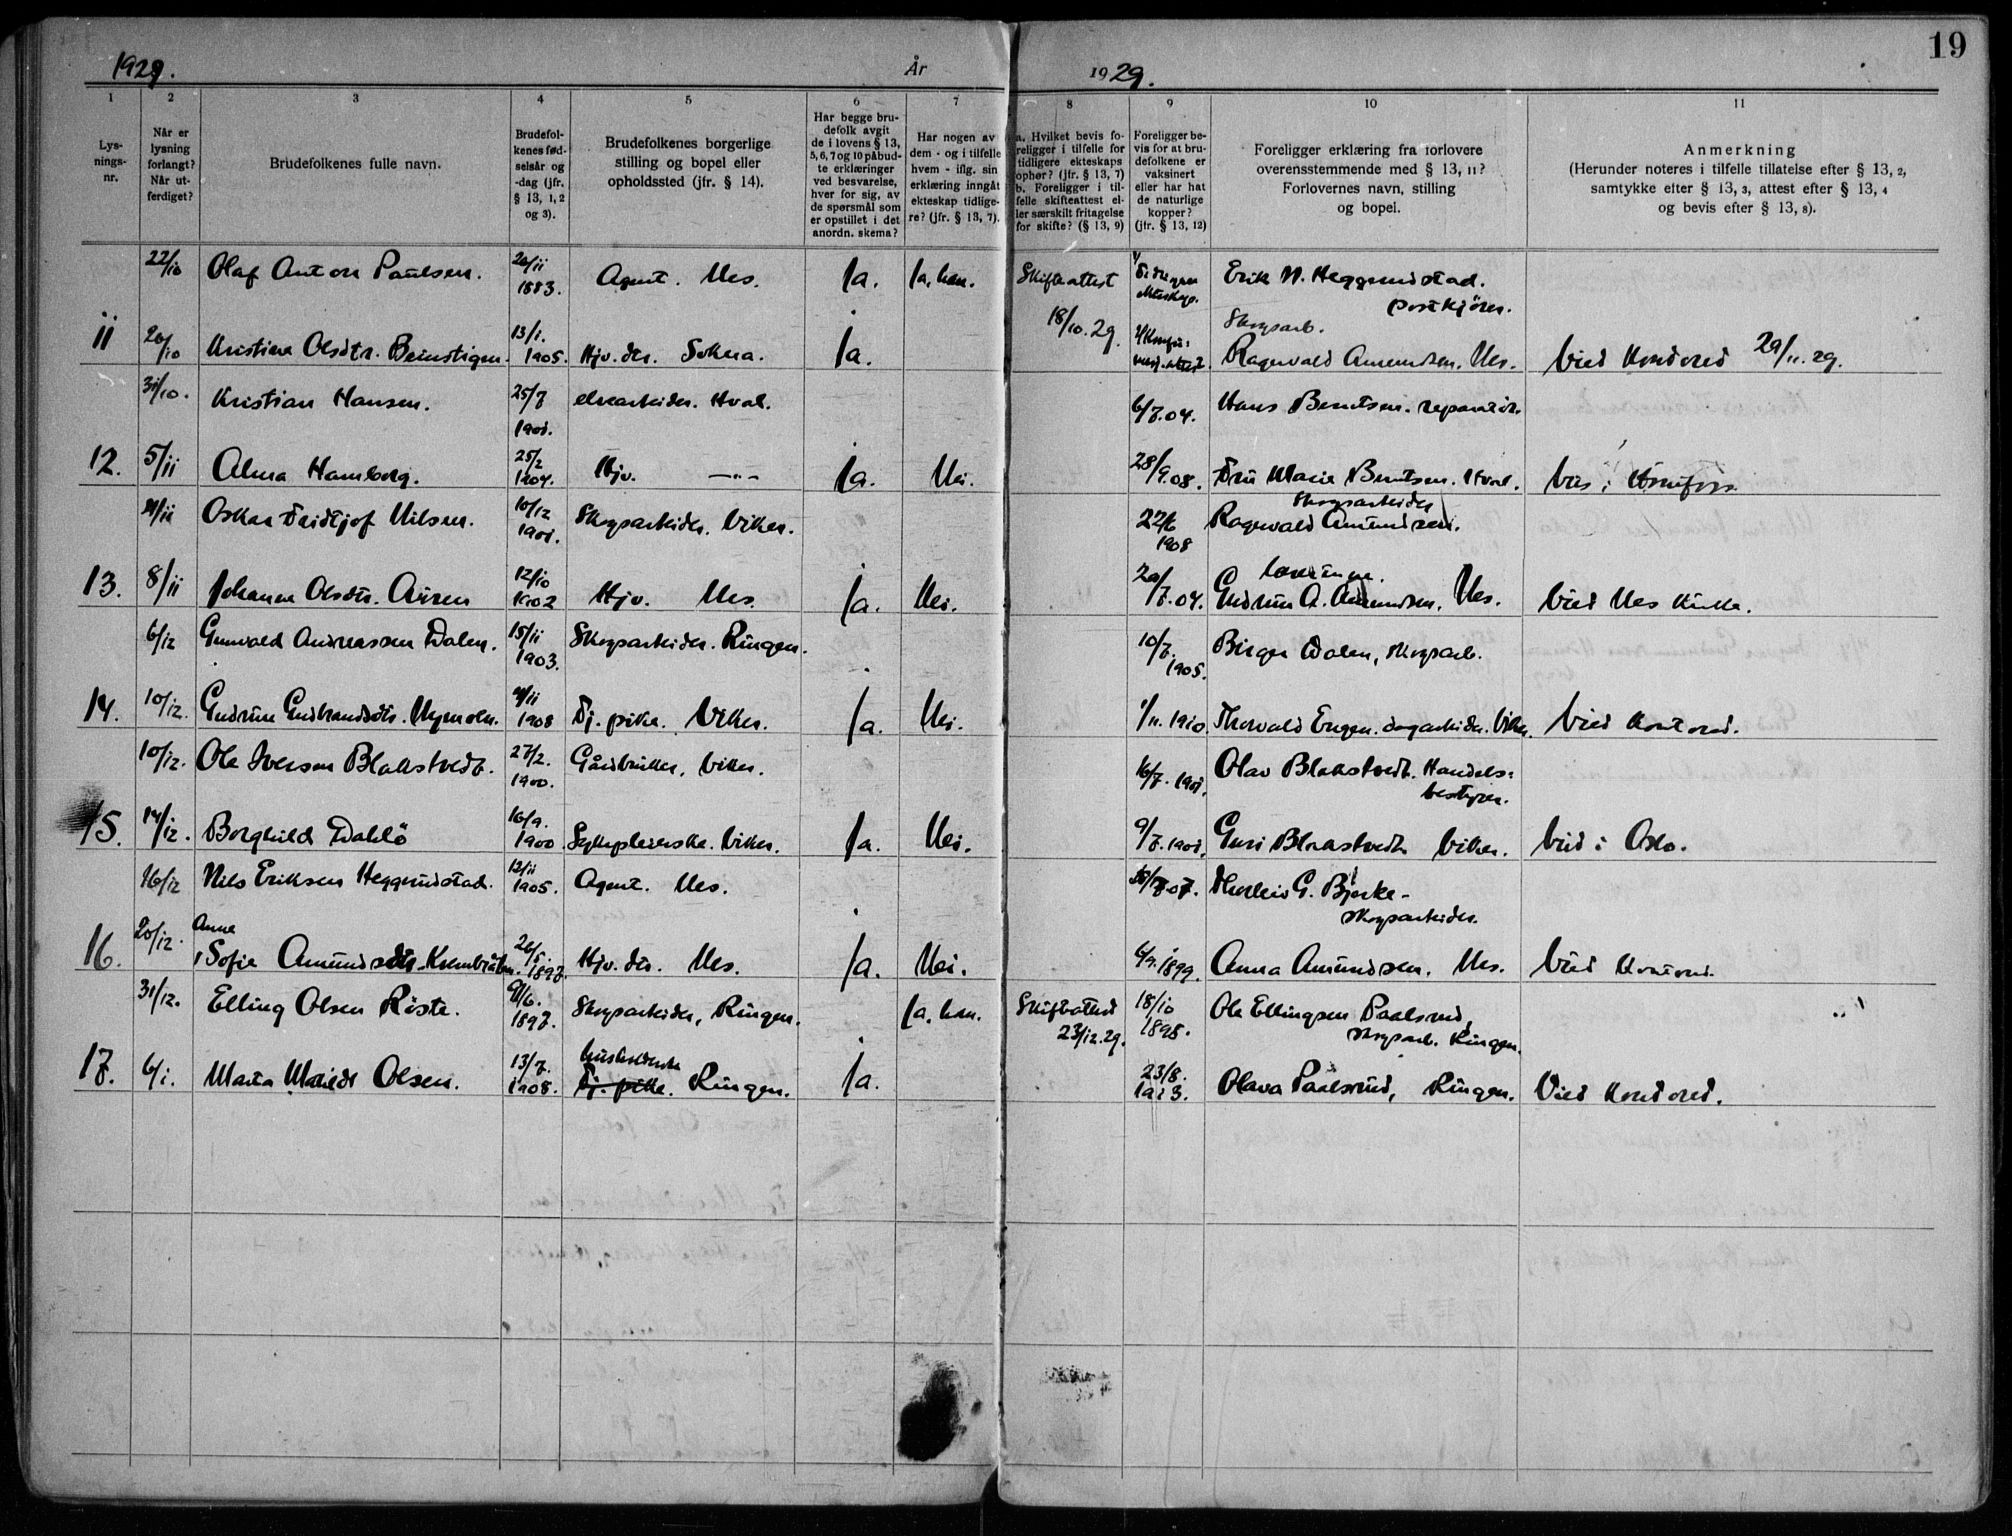 1929. År 1929. 19
1 2 3 4 5 6 7 8 9 10 11
Lys-
nings-
nr.
Når er
lysning
forlangt?
Når ut-
ferdiget?
Brudefolkenes fulle navn.
Brudefol-
kenes fød-
selsår og
-dag (jfr.
§ 13, 1, 2
og 3).
Brudefolkenes borgerlige
stilling og bopel eller
opholdssted (jfr. § 14).
Har begge bru-
defolk avgit
de i lovens § 13,
5, 6, 7 og 10 påbud-
te erklæringer
ved besvarelse,
hver for sig, av
de spørsmål som
er opstillet i det
anordn. skema?
Har nogen av
dem - og i tilfelle
hvem - iflg. sin
erklæring inngått
ekteskap tidlige-
re? (jfr. § 13, 7).
a. Hvilket bevis fo-
religger i tilfelle for
tidligere ekteskaps
ophør? (jfr. § 13, 7)
b. Foreligger i til-
felle skifteattest el-
ler særskilt fritagelse
for skifte? (§ 13, 9)
Foreligger be-
vis for at bru-
defolkene er
vaksinert
eller har hat
de naturlige
kopper?
(jfr. § 13, 12)
Foreligger erklæring fra forlovere
overensstemmende med § 13, 11?
Forlovernes navn, stilling
og bopel.
Anmerkning
(Herunder noteres i tilfelle tillatelse efter § 13, 2,
samtykke efter § 13, 3, attest efter § 13, 4
og bevis efter § 13, 8).
22/10 Olaf Anton Paulsen. 20/11 1883. Agent. Nes. Ja. Ja, han. Skifteattest 18/10.29. Erik N. Heggenistad. postkjörer.
11 20/10 Kristine Olsdtr. Beinstigen. 13/1. 1905. Hjv. dtr. Sokna. Ja. Skogsarb. Ragnvald Amundsen. Nes. Vied Kontoret 29/11.29.
31/10. Kristian Hansen. 25/7 1901. elvearbeider. Hval. 6/7.04. Hans Berntsen. reparatör.
12. 5/11 Alma Hamborg. 25/2 1904. Hjv. —"— Ja. Nei. 28/9.08. Fru Marie Berntsen. Hval. Viet i Hönefoss.
Oskar Fridtjof Nilsen. 10/12 1901. Skogsarbeider. Viker. 22/6 1908 Ragnvald Amundsen. Skogsarbeider
13. 8/11 Johanne Olsdtr. Auren 12/10 1902 Hjv. Nes. Ja. Nei. 20/7.04. Gudrun A. Amundsen. Nes. Vied Nes Kirke.
6/12 Gunvald Andreassen Dalen. 15/11 1903. Skogsarbeider. Ringen. 10/7. 1905. Birger Dalen, skogsarb.
14. 10/12. Gudrun Gudbrandsdtr. Nymoen. 4/11 1908 Tj. pike. Viker. Ja. Nei. 1/11.1910. Thorvald Engen. dagarbeider. Viker. Vied Kontoret.
10/12. Ole Iversen Blakstvedt. 27/2. 1900. Gårdbruker. Viker. 16/7.1901. Olav Blakstvedt. Handels-
bestyrer.
15. 14/12. Borghild Dahlö 16/9. 1900. Sykepleierske. Viker. Ja. Nei. 9/7.1901. Guri Blakstvedt. Viker. Vied i Oslo.
16/12 Nils Eriksen Heggenistad. 12/11 1905. Agent. Nes. Thorleiv G. Bjerke-
skogsarbeider.
16. 20/12. Anne Sofie Amundsdtr. 26/5. 1897. Hjv. dtr. Nes. Ja. Nei. 6/9.1899. Anna Amundsen. Nes. Vied Kontoret.
31/12. Elling Olsen Röste. 1897. Skogsarbeider, Ringen. Ja. han. Skifteattest 23/12.29. 18/10 1898. Ole Ellingsen Paalsrud, skogsarb. Ringen.
17. 6/1. Marta Olsen. 13/7. 1908. husholderske Tj. pike. Ringen. Ja. 23/8. 1913. Olava Paalsrud, Ringen. Vied Kontoret.